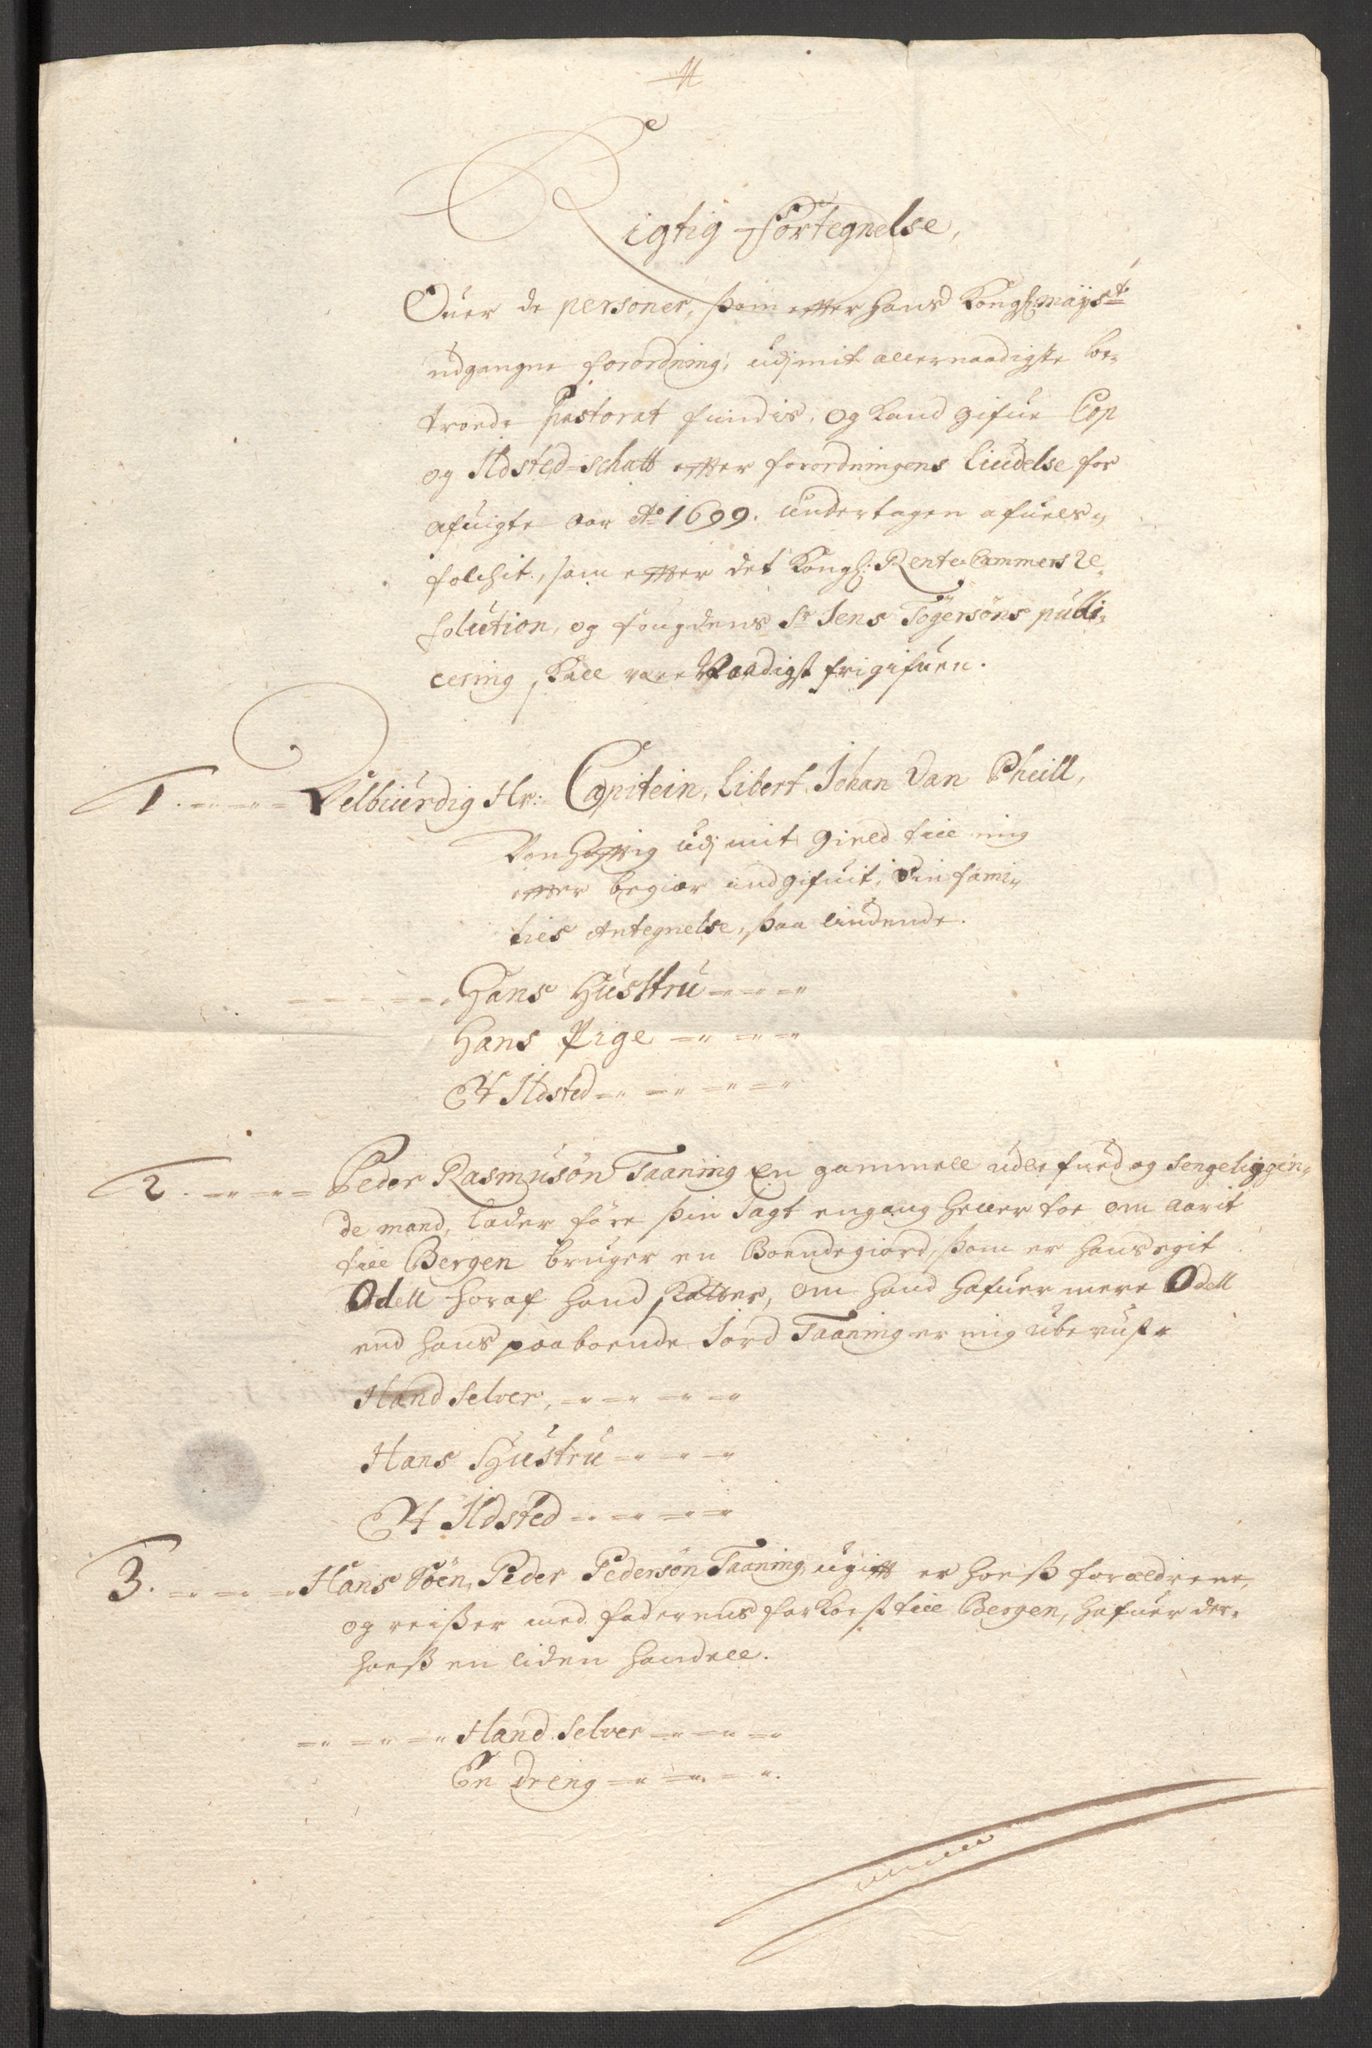 Rigtig Fortegnelse,
Ofuer de personer, som effter hans Kongl: Mayst:
udgangne forordning, udj mit allernaadigste be-
troede Pastorat findis, og kand gifue Cop
og Ildsted-schatt effter forordningens liudelse for
afuigte aar Ao 1699. undertagen afuels-
folchit, som effter det Kongl: Rente-Cammers Re-
solution, og fougdens Sr Jens Tögersöns publi-
cering skall være Naadigst frigifuen.
1. Velbiurdig Hr: Capitein, Libert Johan Van Pheill,
udj mit gield till mig
effter begiær indgifuit, Sin fami-
lies Antegnelse, saa liudende.
Hans Hustru
Hans Pige
Et Ildsted
2. Peder Rasmusön Taaning en gammell udlefued og Sengeliggin-
de mand, lader före sin Jagt engang heller toe om aarit
till Bergen bruger en Bondegiord, som er hans egit
Odell horaf hand skatter, om hand hafuer mere Odell
end hans paaboende Jord Taaning er mig ubevust
Hand Selver,
Hans Hustru
Et Ildsted
3. Hans Söen, Peder Pedersön Taaning, ugifft er hoess foreldrene,
og reisser med faderens farkost till Bergen, hafuer der-
hoess en liden handell.
Hand Selver
En dreng